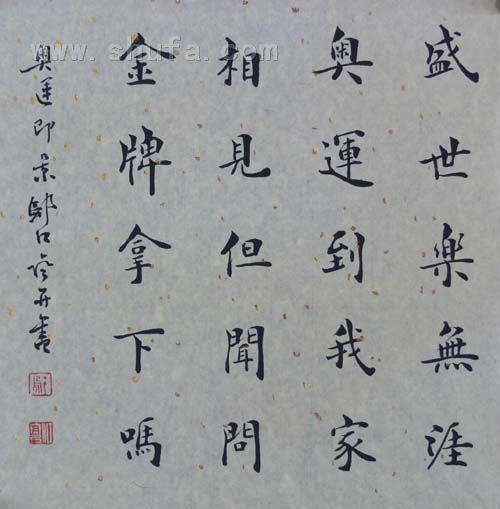 www.shufa.com
盛世楽無涯
奧運到我家
相見但聞問
金牌拿下嗎
奥運即景口吟并書